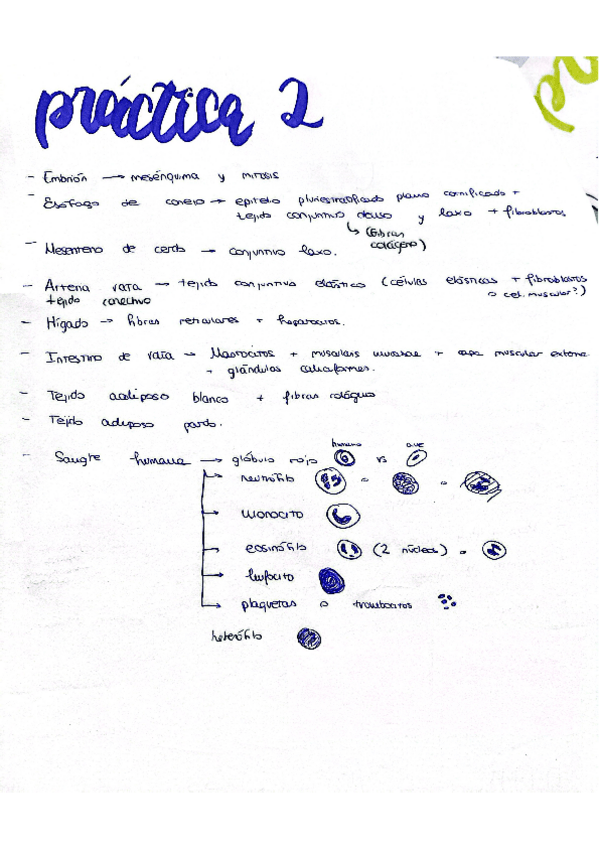 práctica 2
- Embrión → mesénquima y mitosis
- Esófago de conejo → epitelio pluriestratificado plano cornificado +
tejido conjuntivo denso y laxo + fibroblastos
↳ (fibras
colágeno)
- Mesenterio de cerdo → conjuntivo laxo.
- Arteria rata → tejido conjuntivo elástico (células elásticas + fibroblastos
tejido conectivo o cel. muscular?)
- Hígado → fibras reticulares + hepatocitos.
- Intestino de rata → Mastocitos + muscularis mucosae + capa muscular externa
+ glándulas caliciformes.
- Tejido adiposo blanco + fibras colágeno
- Tejido adiposo pardo.
humano ave
- Sangre humana → glóbulo rojo vs
→ neutrófilo o o
→ monocito
→ eosinófilo (2 núcleos) o
→ linfocito
→ plaquetas o trombocitos
heterófilo